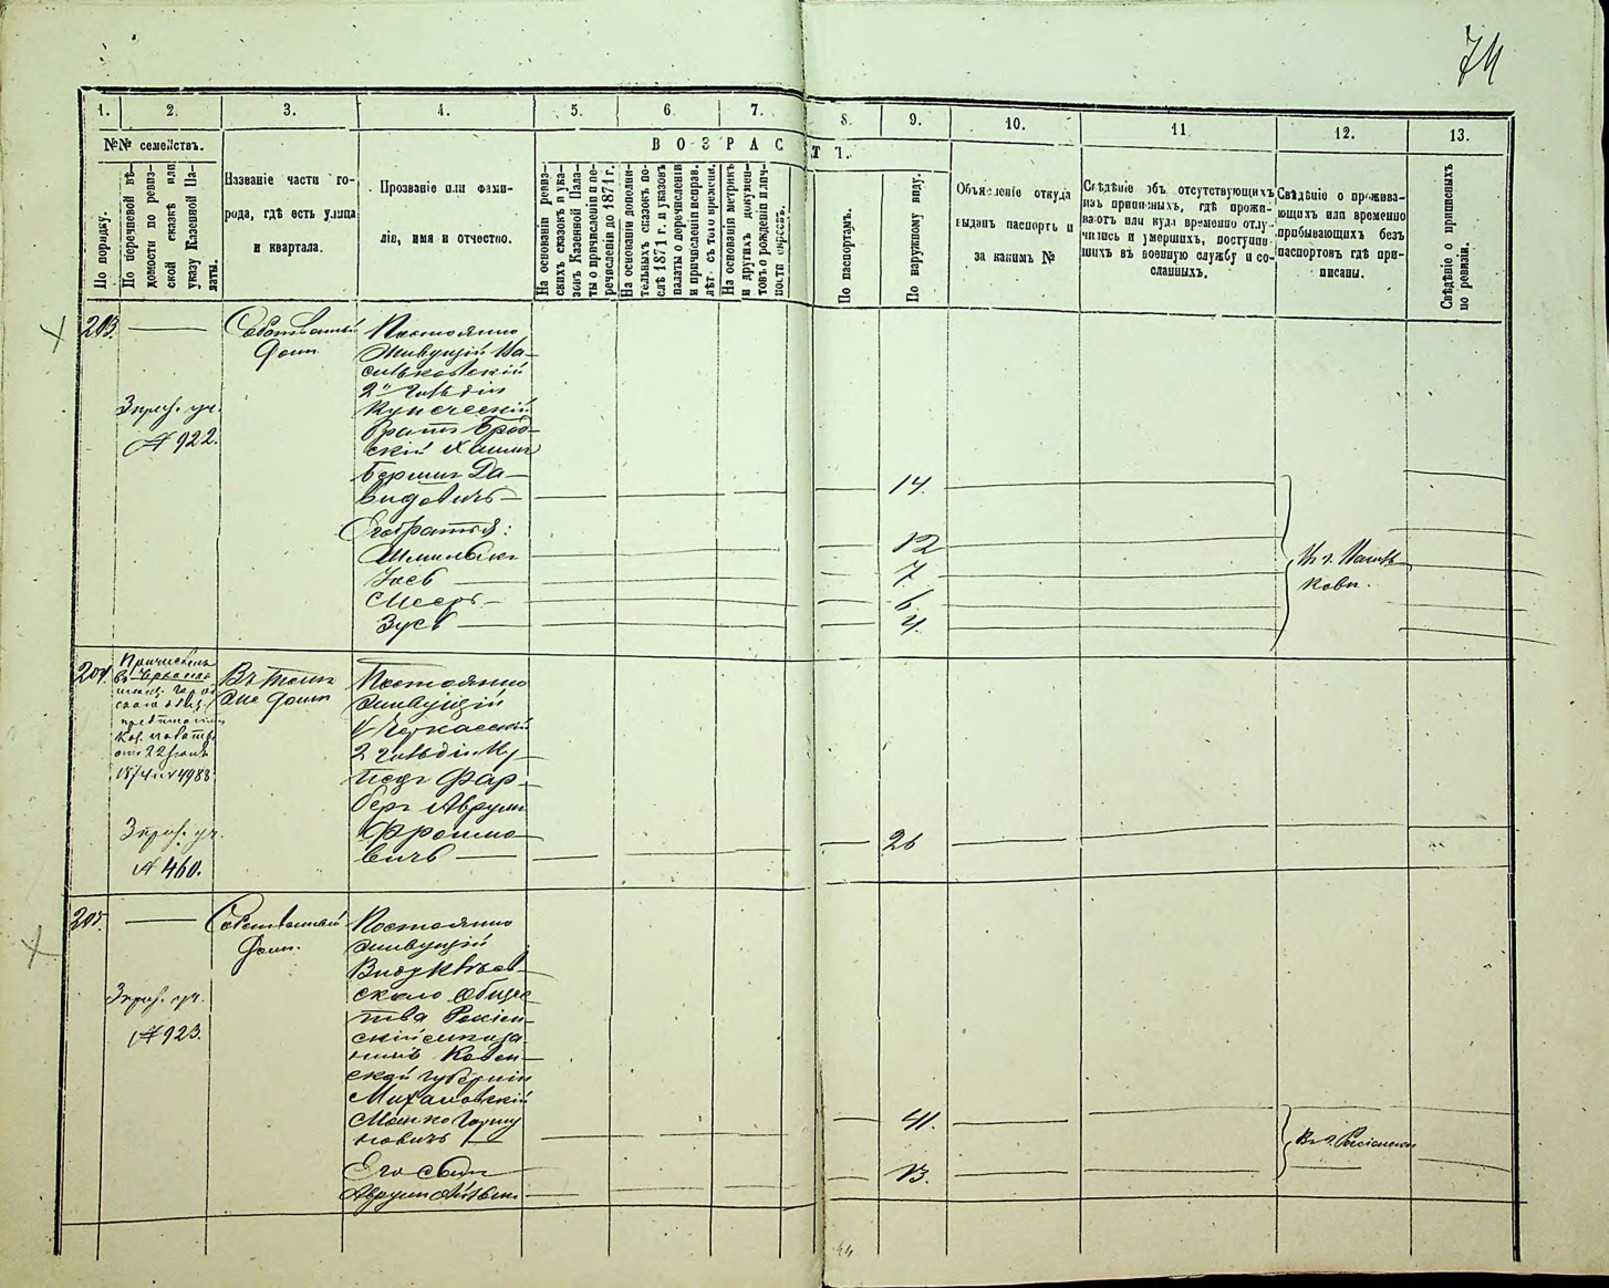 74
1. 2. 3. 4. 5. 6. 7. 8. 9. 10. 11 12. 13.
№№ семействъ.
В О З Р А С Т Ъ.
По порядку.
По перечневой вѣ-
домости по ревиз-
ской сказкѣ или
указу Казенной Па-
латы.
Названіе части го-
рода, гдѣ есть улица
и квартала.
Прозваніе или фами-
лія, имя и отчество.
На основаніи ревиз-
скихъ сказокъ и ука-
зовъ Казенной Пала-
ты о причисленіи и пе-
речисленіи до 1871 г.
На основаніи дополни-
тельныхъ сказокъ по-
слѣ 1871 г. и указовъ
палаты о перечисленіи
и причисленіи исправ.
лѣт съ того времени.
На основаніи метрикъ
и другихъ докумен-
товъ о рожденіи и лич-
ности евреевъ.
По паспортамъ.
По наружному виду.
Объясленіе откуда
выданъ паспортъ и
за какимъ №
Свѣдѣніе объ отсутствующихъ
изъ приписныхъ, гдѣ прожи-
ваютъ или куда временно отлу-
чились и умершихъ, поступив-
шихъ въ военную службу и со-
сланныхъ.
Свѣдѣніе о прожива-
ющихъ или временно
прибывающихъ безъ
паспортовъ гдѣ при-
писаны.
Свѣдѣніе о пришеныхъ
по ревизіи.
203.
№ 922.
Собственный
домъ
Постоянно
Живущій Ва-
сильковскій
2й гильдіи
Купеческій
братъ Брод-
скій Хаимъ
Берко Да-
видовичъ
14.
Его братья:
Шмилька
12
7.
Мееръ
6.
Зусь
4.
204.
Причисленъ
№ 4983
№ 460.
Въ томъ
же домѣ
Постоянно
живущій
Черкасскій
2 гильдіи Ку-
пецъ Фар-
беръ Аврумъ
Фроимо-
вичъ
26
205.
№ 923.
Собственный
домъ.
Постоянно
живущій
скаго обще-
ства Россіен-
скій
Ковен-
ской губерніи
Мошко
новичъ
41.
Его сынъ
Аврумъ
13.